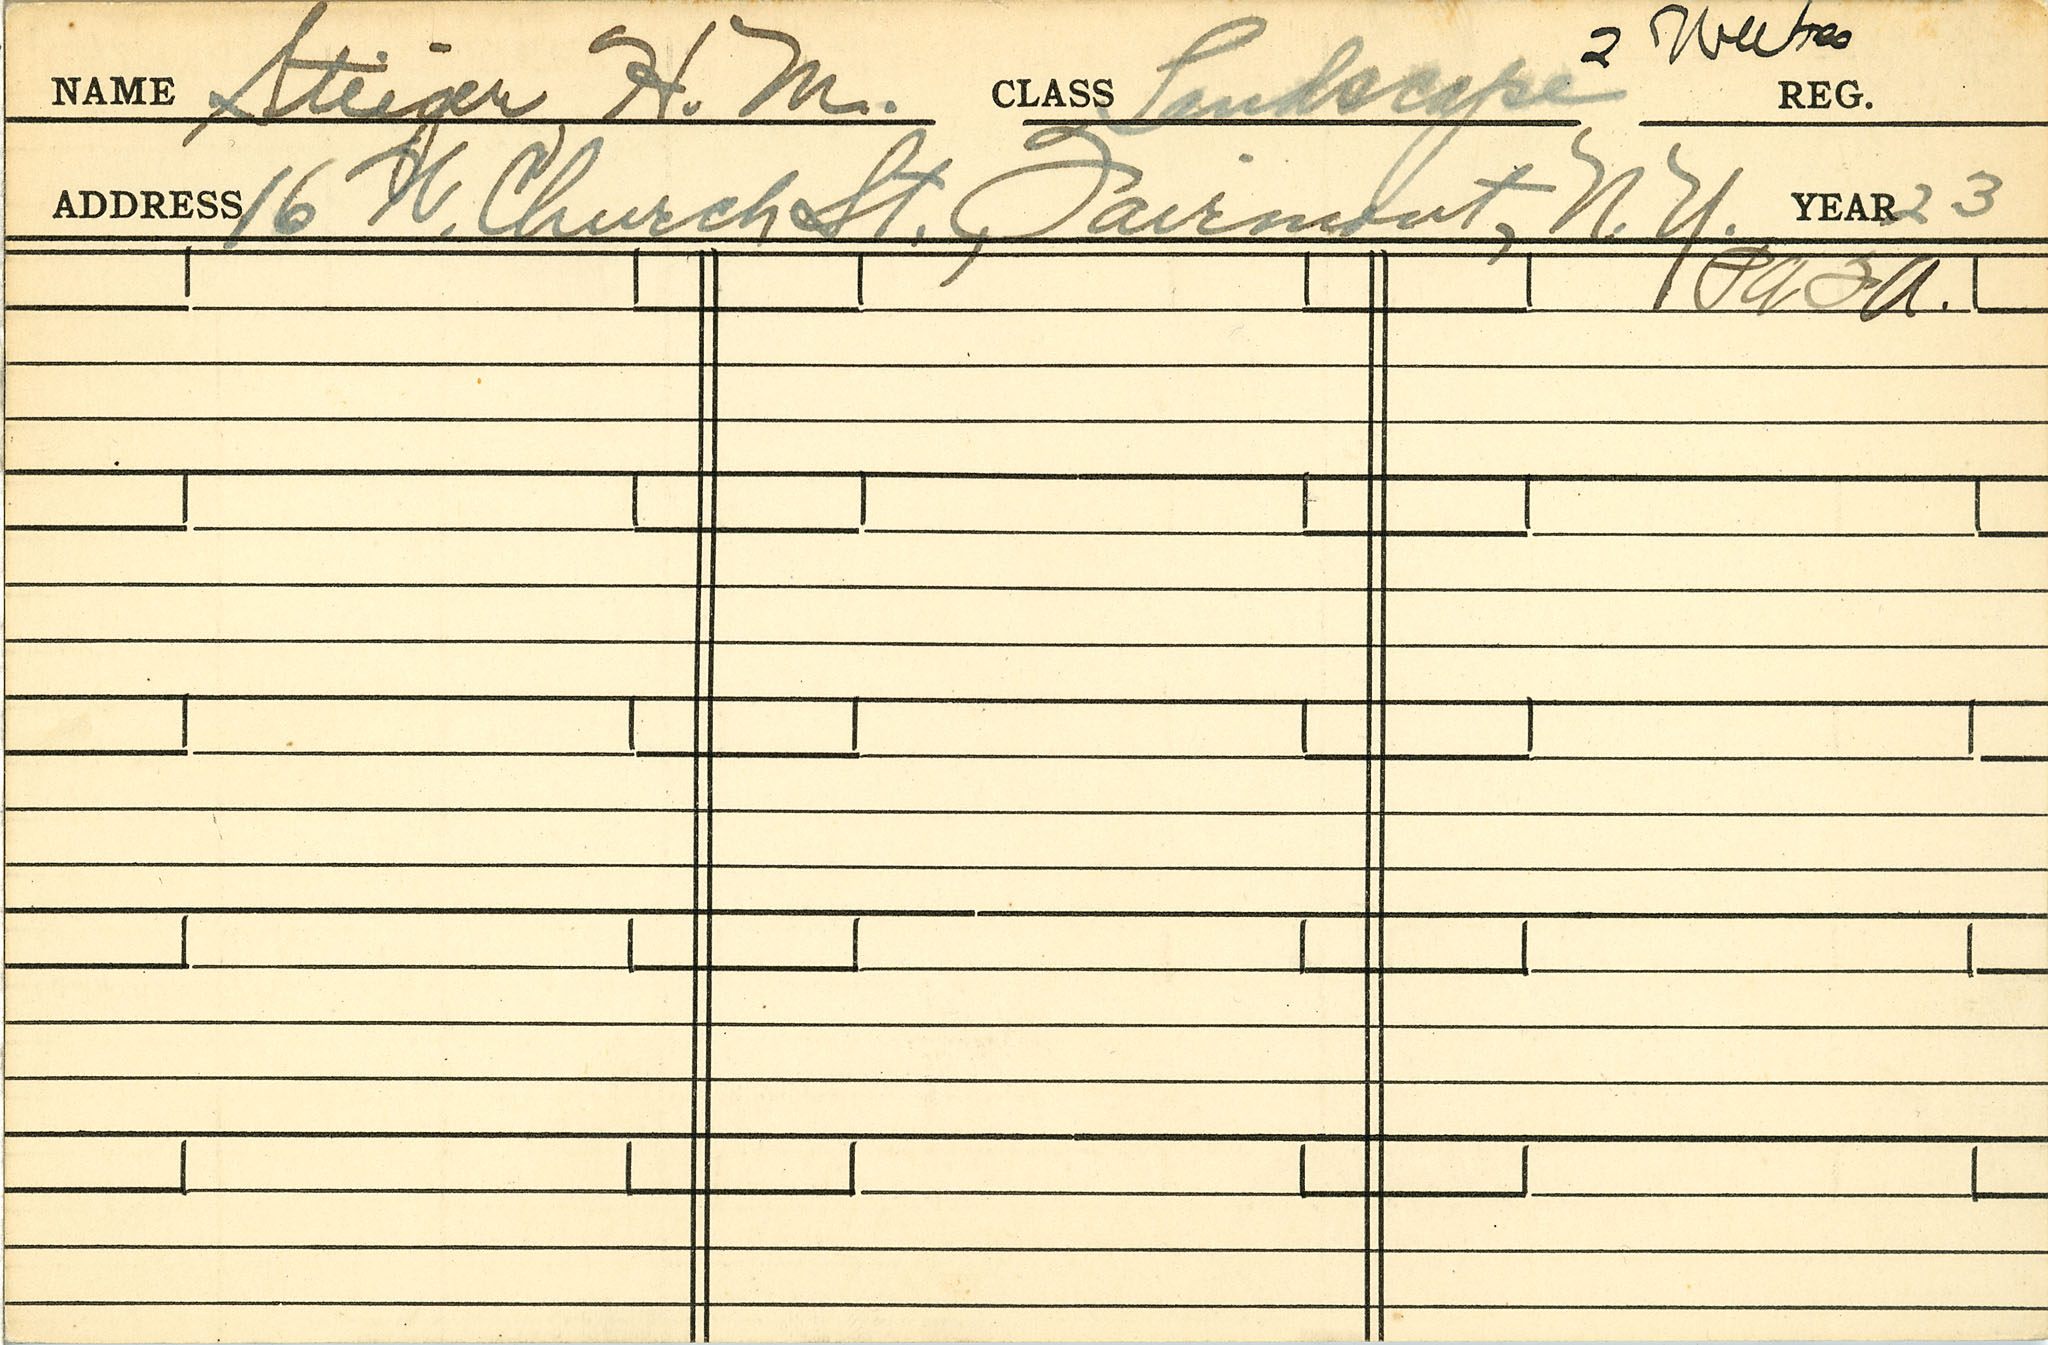 NAME Steiger H. M. CLASS Landscape 2 Weeks REG.
ADDRESS 16 W. Church St., Fairmont, N. Y. YEAR 23